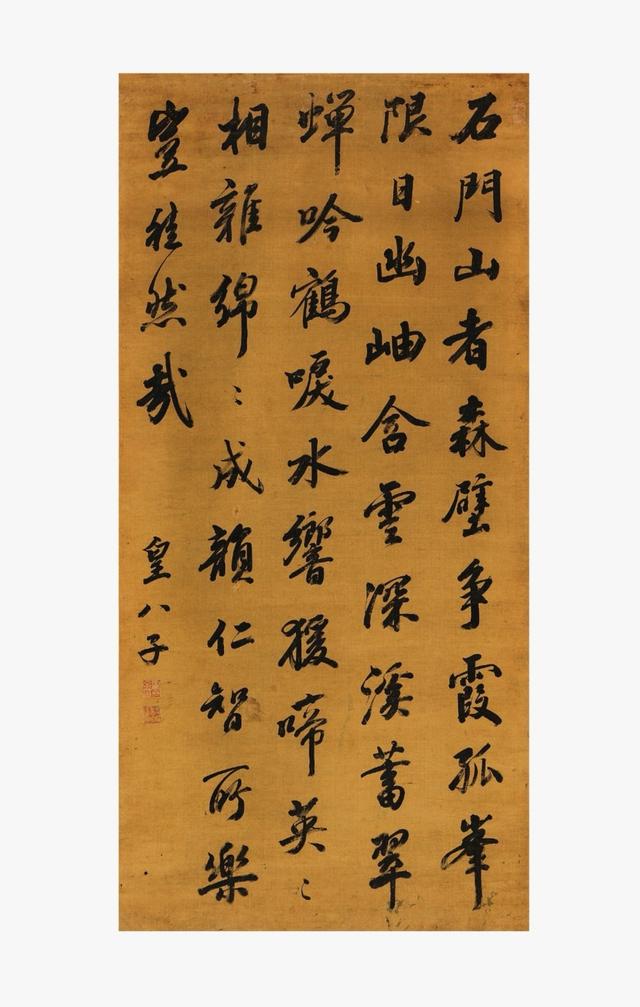 石門山者森壁争霞孤峯
限日幽岫含雲深溪蓄翠
蟬吟鶴唳水響猨啼英〻
相雜綿〻成韻仁智所樂
豈徒然哉
皇八子